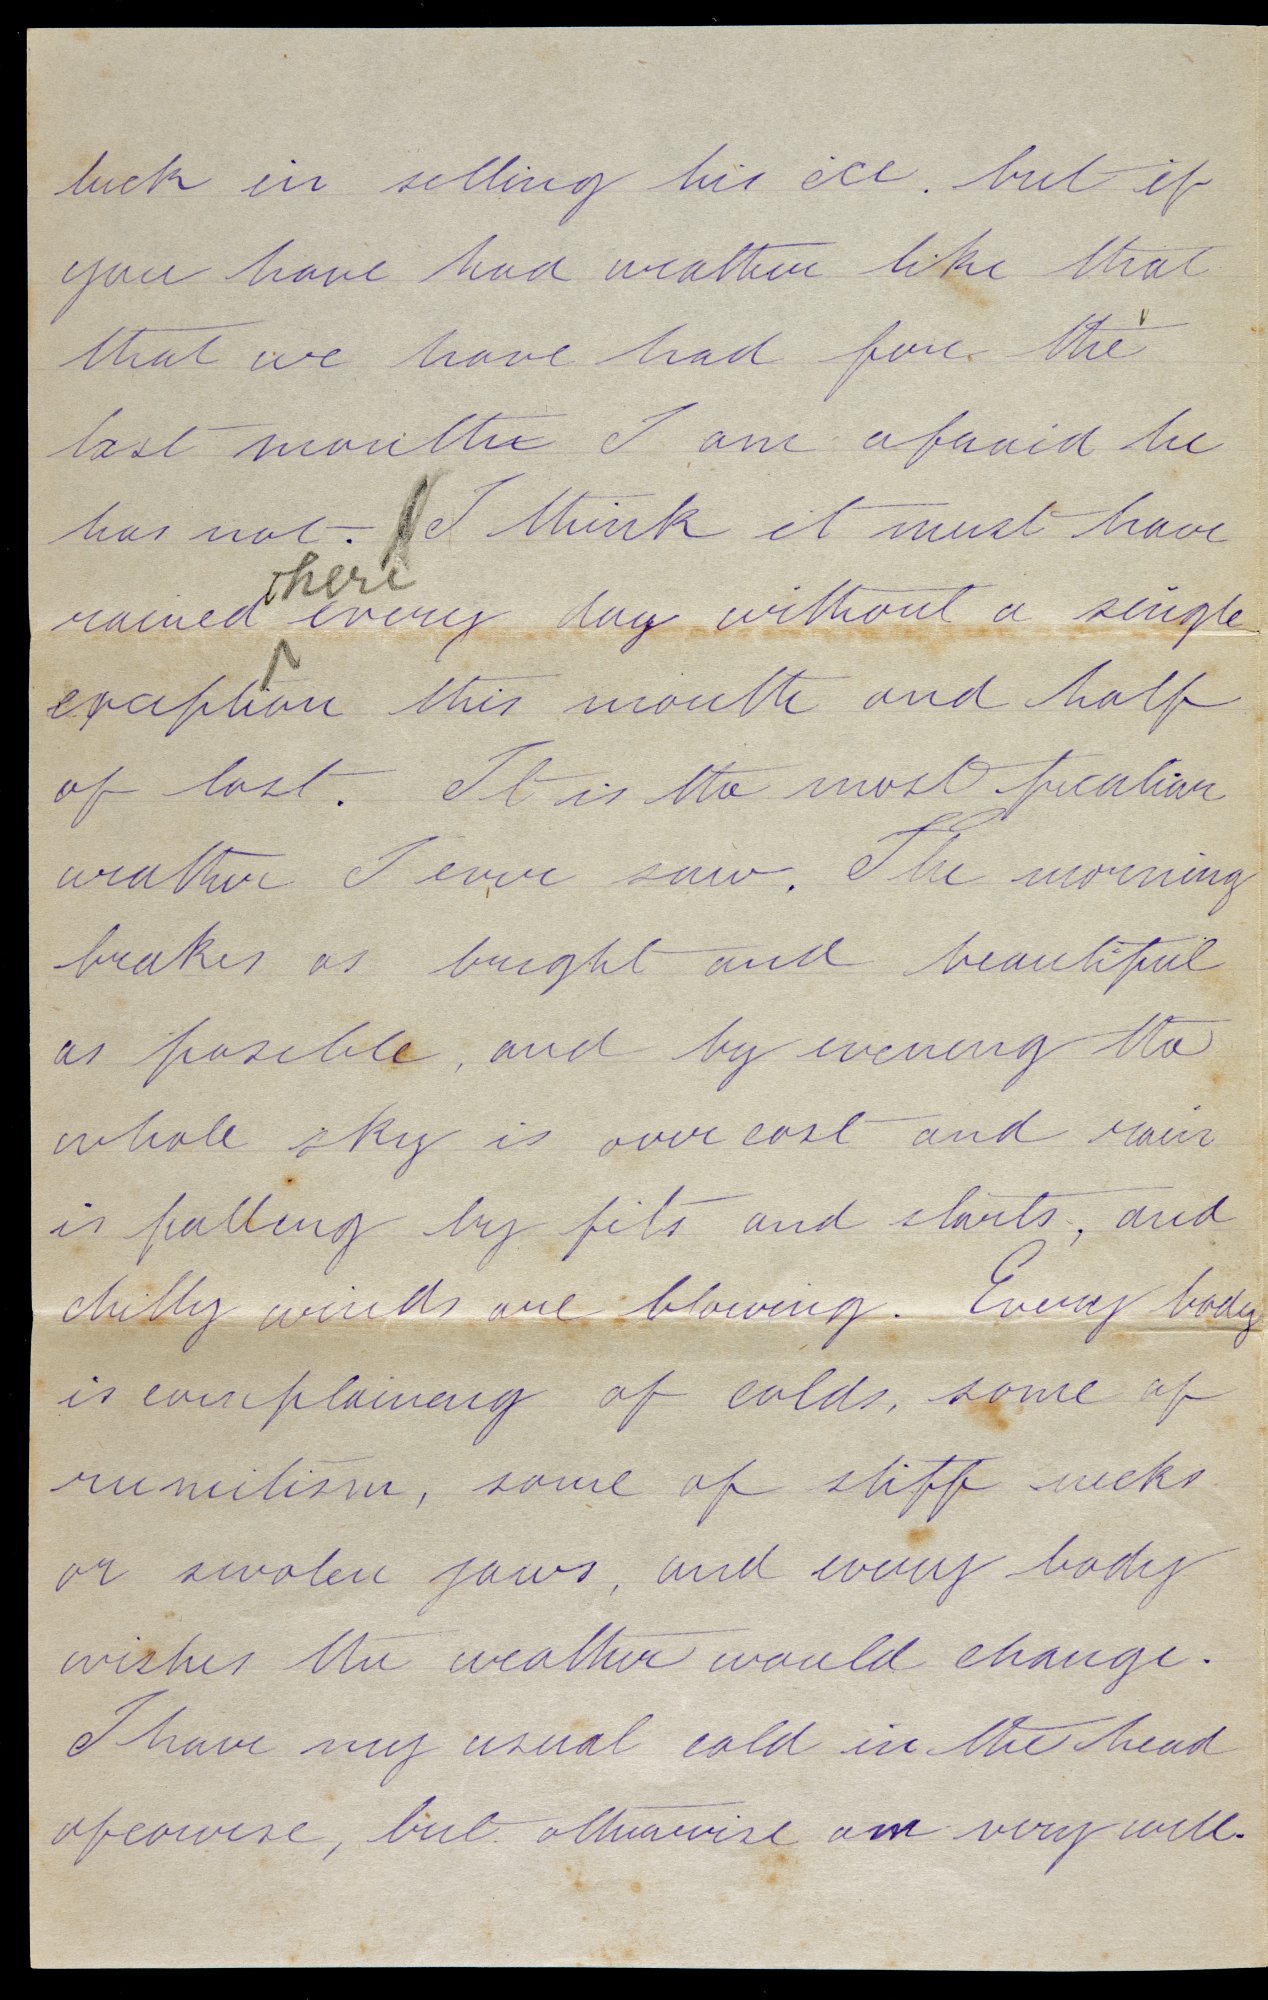 luck in selling his ice. but if
you have had weather like that
that we have had for the
last month I am afraid he
has not. I think it must have
rained here every day without a single
exception this month and half
of last. It is the most peculiar
weather I ever saw. The morning
brakes as bright and beautiful
as posible, and by evening the
whole sky is over cast and rain
is falling by fits and starts, and
chilly winds are blowing. Every body
is complaineng of colds, some of
rumitism, some of stiff necks
or swolen jaws, and every body
wishes the weather would change.
I have my usual cold in the head
ofcowrse, but otherwise am very well.